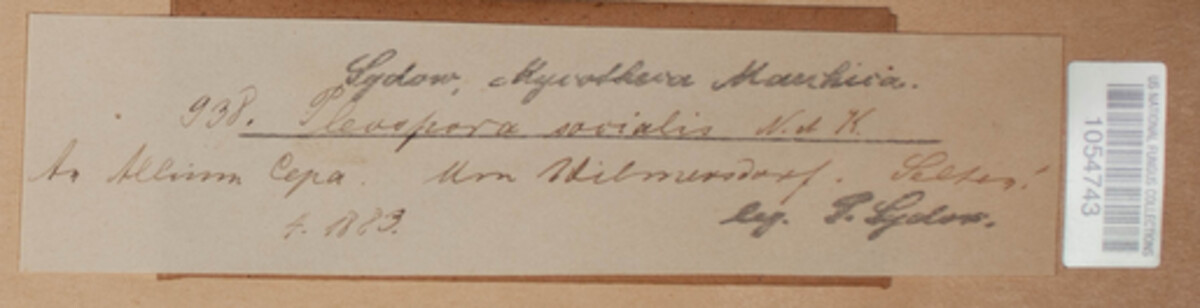 Sydow, Mycotheca Marchica.
938. Pleospora socialis N. et K.
An Allium Cepa. Um Wilmersdorf. Selten!
4. 1883. leg. P. Sydow.
US NATIONAL FUNGUS COLLECTIONS
1054743